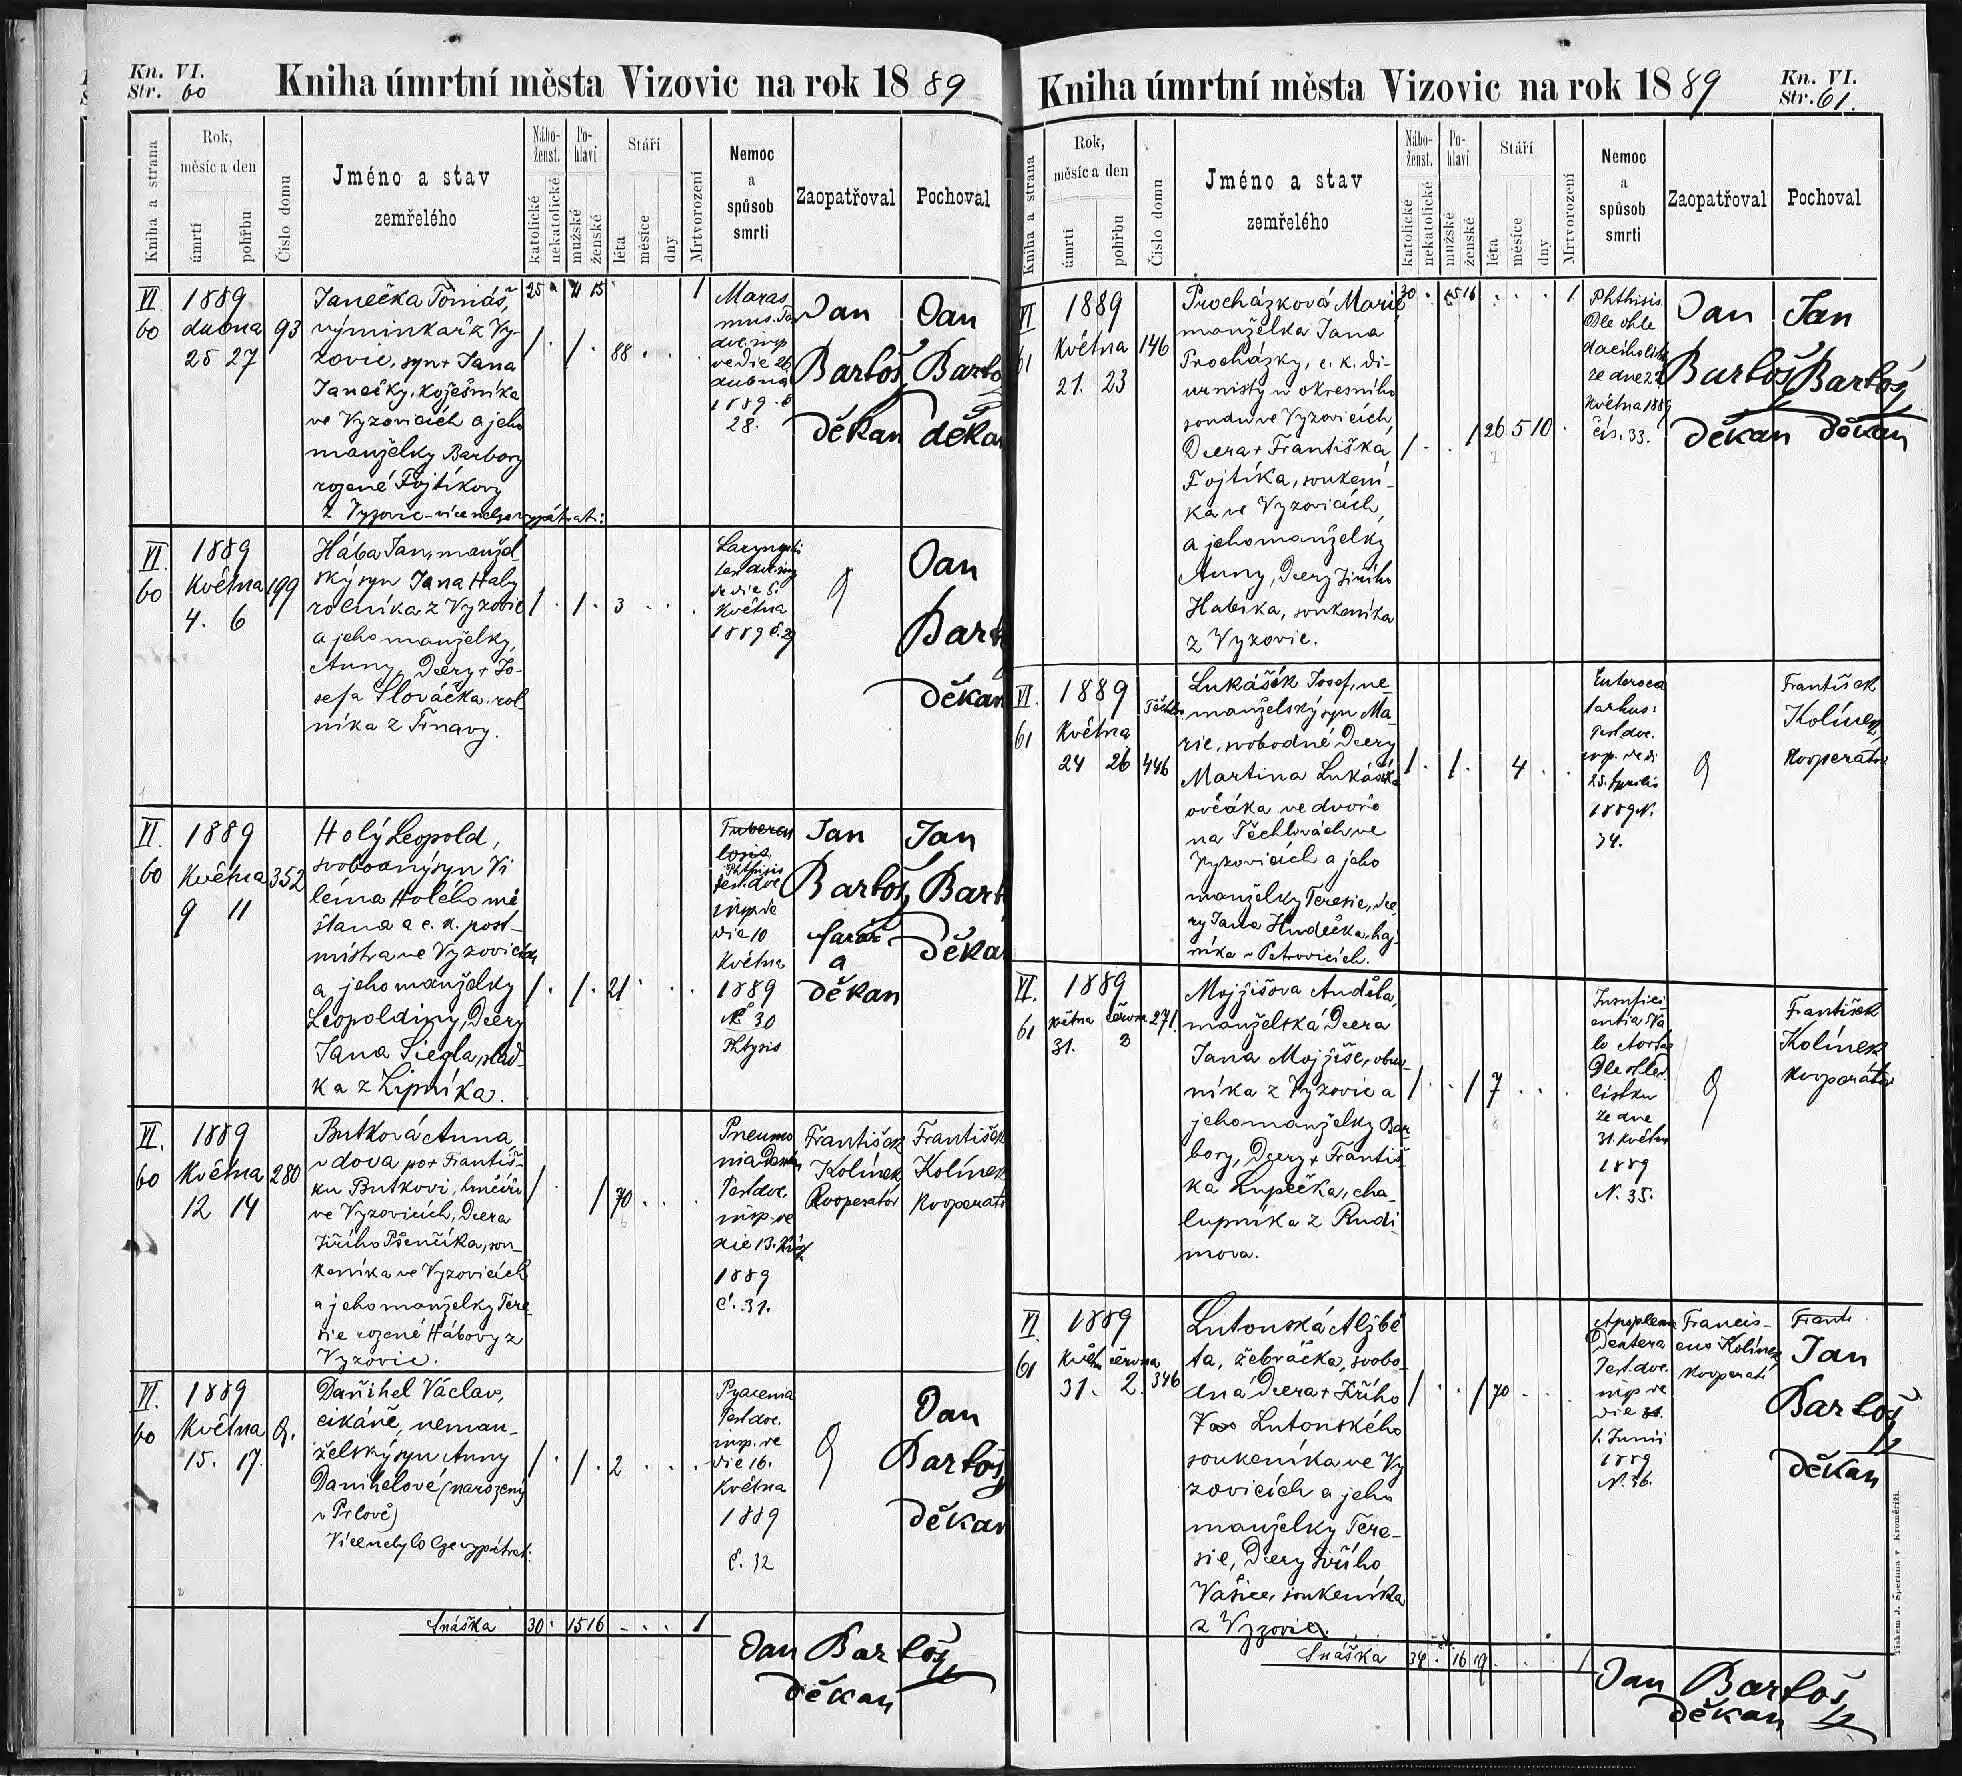 Kn. VI.
Str. 60
Kniha úmrtní města Vizovic na rok 1889
Kniha a strana
Rok,
měsíc a den
úmrtí
pohřbu
Číslo domu
Jméno a stav
zemřelého
Nábo-
ženst.
katolické
nekatolické
Po-
hlaví
mužské
ženské
Stáří
léta
měsíce
dny
Mrtvorození
Nemoc
a
spůsob
smrti
Zaopatřoval
Pochoval
VI
60
1889
dubna
25 27
93
Janečka Tomáš,
výminkář z Vy-
zovic, syn + Jana
Janečky, kožešníka
ve Vyzovicích a jeho
manželky Barbory
rozené Fojtíkovy
z Vyzovic - více nelze vypátrati:
25 11 15 1
1 . 1 . 88 . . .
Maras
mus.
ve die 26
dubna
1889 č
28.
Jan
Bartoš
děkan
Jan
děkan
VI
60
1889
Května
4. 6
199
Hába Jan, manžel
ský syn Jana Háby
rolníka z Vyzovic
a jeho manželky
Anny, Dcery + Jo-
sefa Slováčka rol-
níka z Trnavy.
1 . 1 . 3 . . .
ve die 5.
Května
1889 č. 29
Jan
děkan
VI
60
1889
Května
9 11
352
Holý Leopold,
svobodný syn Vi
léma Holého mě
šťana a c. k. post-
mistra ve Vyzovicích
a jeho manželky
Leopoldiny, Dcery
Jana Siegla, slad-
ka z Lipníka.
1 . 1 . 21 . . .
Tubercu
losis
Phthisis
test. dve
insp. de
die 10
Května
1889
N. 30
Phtysis
Jan
Bartoš
farář
a
děkan
Jan
VI.
60
1889
Května
12 14
280
Butková Anna
vdova po + Františ-
ku Butkovi, hrnčíři
ve Vyzovicích, Dcera
Jiřího Pšenčíka, sou-
keníka ve Vyzovicích
a jeho manželky Tere-
sie rozené Hábovy z
Vyzovic.
1 . . 1 70 . . .
Pneumo
nia
Test. dve.
insp. de
die 13. Květ
1889
č. 31.
František
Kolínek
Kooperator
František
Kolínek
VI
60
1889
Května
15. 17.
Daňihel Václav,
cikáně, neman-
želský syn Anny
Danihelové (narozený
v Prlově)
Více nebylo lze vypátrat:
1 . 1 . 2 . . .
Pyaemia
Test. dve.
insp. de
die 16.
Května
1889
č. 32
Jan
Bartoš
děkan
Snáška 30 . 15 16 . . . 1
Jan Bartoš
děkan
Kniha úmrtní města Vizovic na rok 1889
Kn. VI.
Str. 61.
Kniha a strana
Rok,
měsíc a den
úmrtí
pohřbu
Číslo domu
Jméno a stav
zemřelého
Nábo-
ženst.
katolické
nekatolické
Po-
hlaví
mužské
ženské
Stáří
léta
měsíce
dny
Mrtvorození
Nemoc
a
spůsob
smrti
Zaopatřoval
Pochoval
VI
61
1889
Května
21. 23
146
Procházková Marie
manželka Jana
Procházky, c. k. di-
urnisty u okresního
soudu ve Vyzovicích,
Dcera + Františka
Fojtíka, soukení-
ka ve Vyzovicích,
a jeho manželky
Anny, Dcery Jiřího
Habíka, soukeníka
z Vyzovic.
30 . 15 16 . . . 1
1 . . 1 26 5 10 .
Phthisis
Dle ohle
dacího listu
ze dne 22
Května 1889
čís. 33.
Jan
Bartoš
děkan
Jan
Bartoš
děkan
VI.
61
1889
Května
24 26
446
Lukášík Josef, ne-
manželský syn Ma-
rie, svobodné Dcery
Martina Lukášíka
ovčáka ve dvoře
na Těchlovách ve
Vyzovicích a jeho
manželky Teresie, dce
ry Jana Hudečka, haj-
níka v Petrovicích.
1 . 1 . 4 . .
Test. dve.
insp. de di
25. Aprilis
1889 N.
34.
František
Kolínek,
Kooperátor
VI.
61
1889
května června
31. 2
271
Mojžišova Anděla,
manželská Dcera
Jana Mojžíše, obuv-
níka z Vyzovic a
jeho manželky Bar-
bory, Dcery + Františ-
ka Lupečka, cha-
lupníka z Rudi
mova.
1 . . 1 7 . . .
Insufici
entia Va
lv Aortae
Dle ohled.
lístku
ze dne
31. května
1889
N. 35.
František
Kolínek
kooperátor
VI
61
1889
Květ. června
31. 2.
346
Lutonská Alžbě
ta, žebračka, svobo-
dná Dcera + Jiřího
Lutonského
soukeníka ve Vy
zovicích a jeho
manželky Tere-
sie, Dcery Jiřího
Vašice, soukeníka
z Vyzovic.
1 . . 1 70 . . .
Test. dve.
insp. de
die 31.
1. Junii
1889
N. 36.
Francis-
cus Kolínek
Kooperat
Frant.
Jan
Bartoš
děkan
Snáška 34 . 16 19 . . . 1
Jan Bartoš
děkan
Tiskem J. Šperlína v Kroměříži.